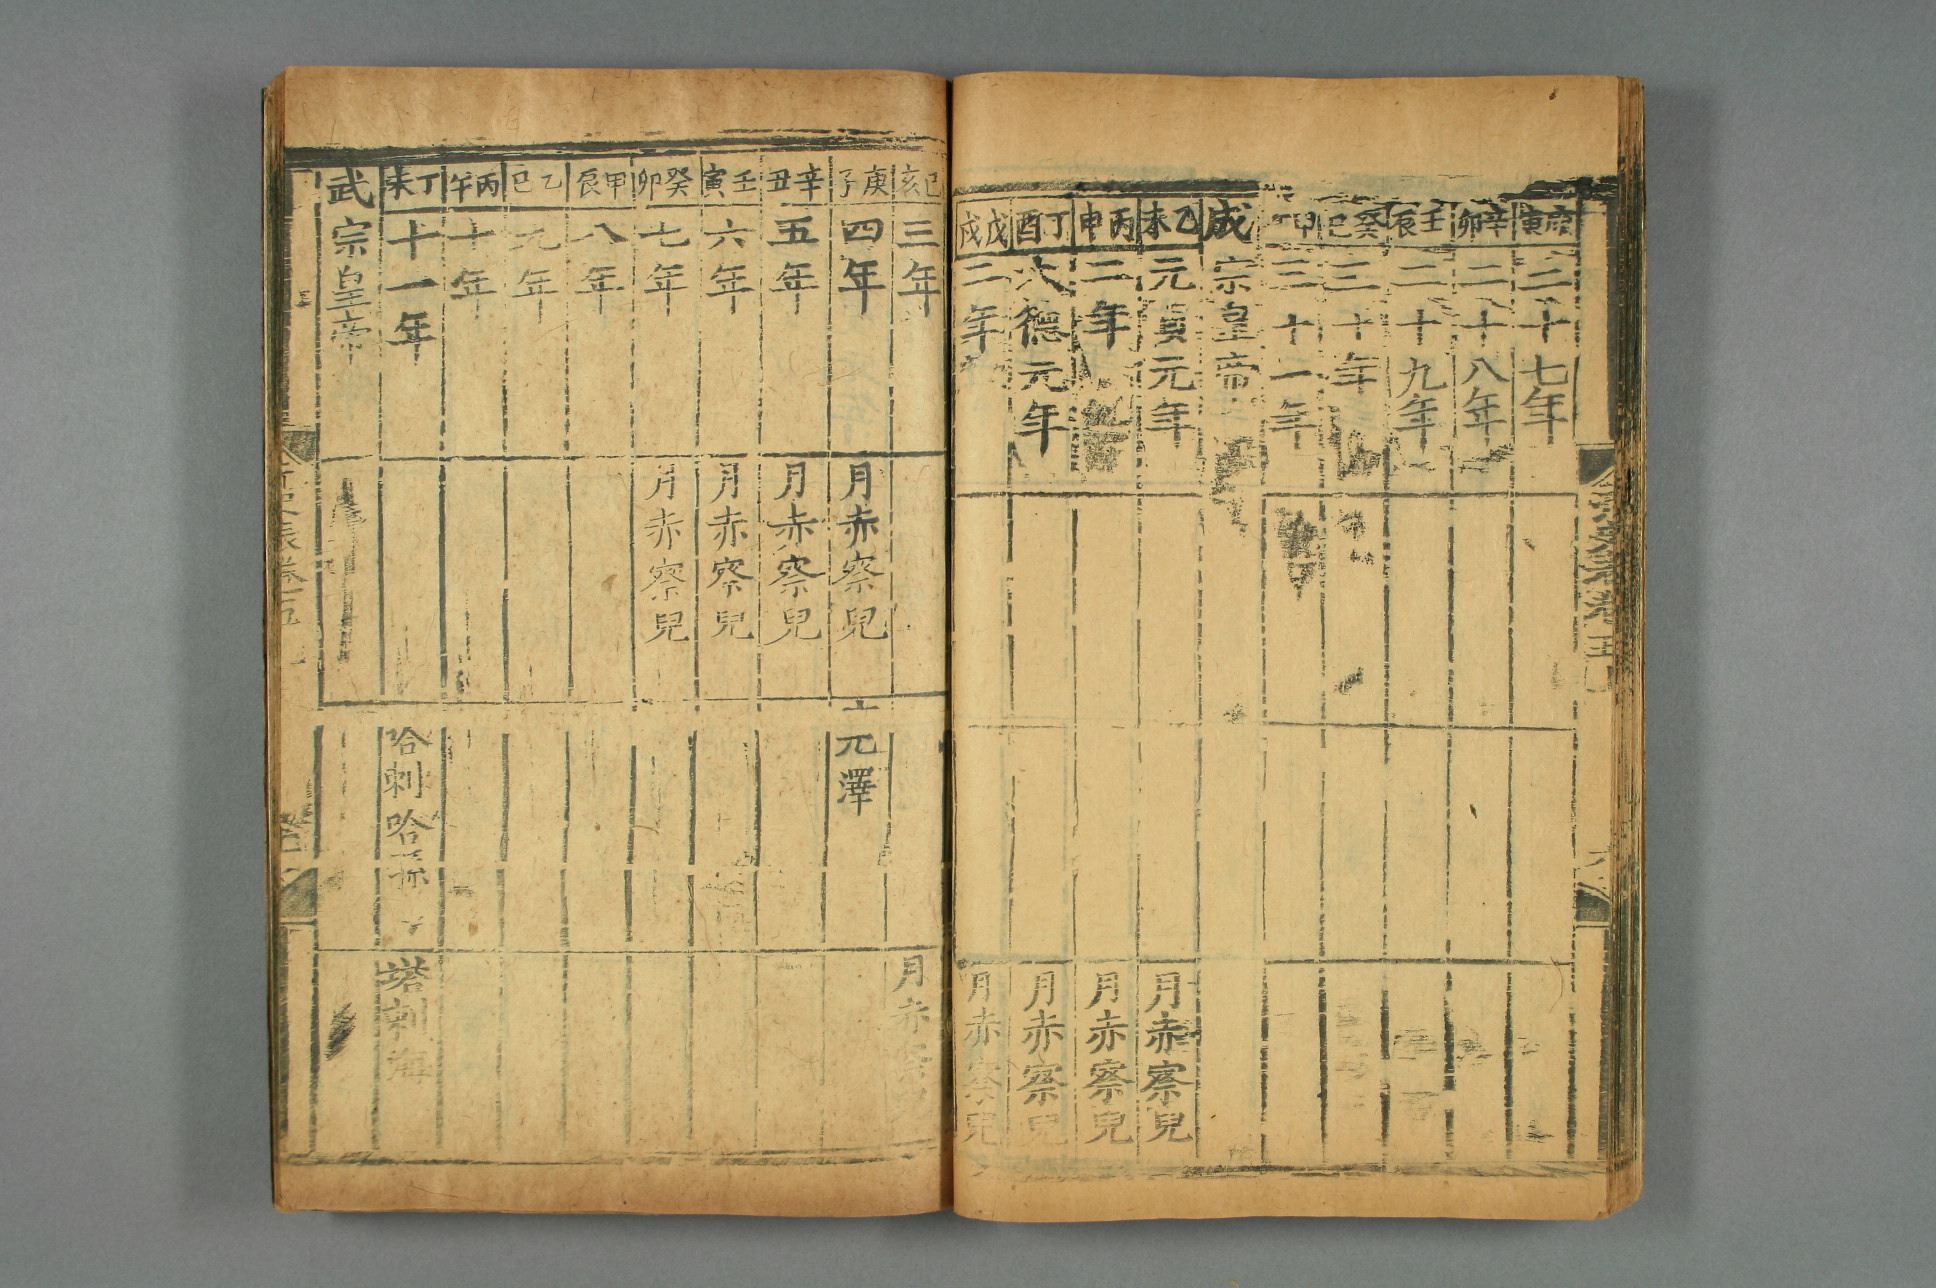 庚寅 二十七年
辛卯 二十八年
壬辰 二十九年
癸巳 三十年
甲 三十一年
成宗皇帝
乙未 元貞元年 月赤察兒
丙申 二年 月赤察兒
丁酉 大德元年 月赤察兒
戊戌 二年 月赤察兒
己亥 三年 月赤
庚子 四年 月赤察兒 元澤
辛丑 五年 月赤察兒
壬寅 六年 月赤察兒
癸卯 七年 月赤察兒
甲辰 八年
乙巳 九年
丙午 十年
丁未 十一年 哈剌哈孫 塔剌海
武宗皇帝